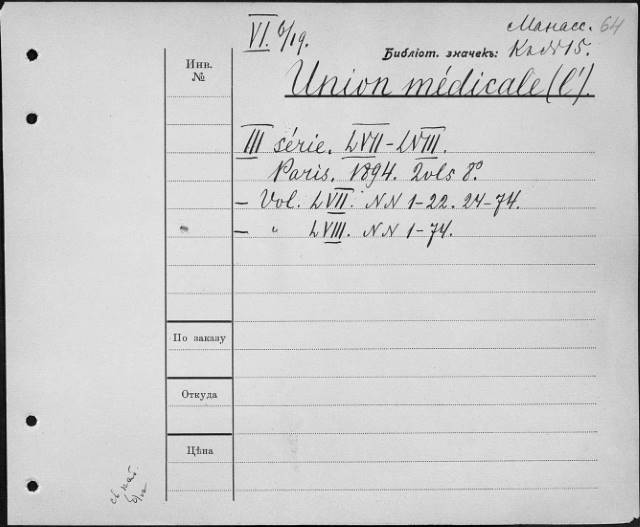 VI. 6/19.
Манасс. 64
Библіот. значекъ: К2 № 15.
Инв.
№
Union médicale (l').
III série. LVII-LVIII.
Paris. 1894. 2 vols 8°
— Vol. LVII. NN 1-22. 24-74.
— " LVIII. NN 1-74.
По заказу
Откуда
Цѣна